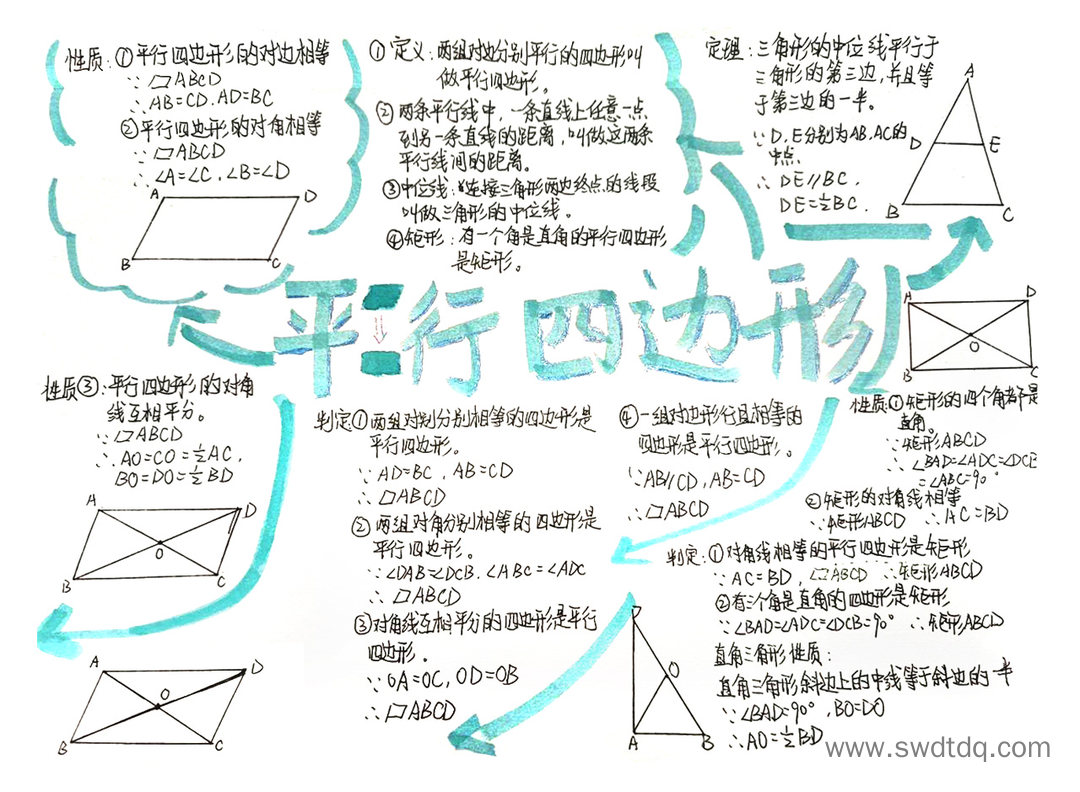 性质：①平行四边形的对边相等
∵ ▱ABCD
∴ AB=CD，AD=BC
②平行四边形的对角相等
∵ ▱ABCD
∴ ∠A=∠C，∠B=∠D
A
D
B
C
① 定义：两组对边分别平行的四边形叫
做平行四边形。
② 两条平行线中，一条直线上任意一点
到另一条直线的距离，叫做这两条
平行线间的距离。
③中位线：连接三角形两边终点的线段
叫做三角形的中位线。
④矩形：有一个角是直角的平行四边形
是矩形。
定理：三角形的中位线平行于
三角形的第三边，并且等
于第三边的一半。
∵ D，E分别为AB，AC的
中点
∴ DE∥BC，
DE=½BC．
A
D
E
B
C
平行四边形
A
D
O
B
C
性质③：平行四边形的对角
线互相平分。
∵ ▱ABCD
∴ AO=CO=½AC，
BO=DO=½BD
A
D
O
B
C
A
D
O
B
C
判定①两组对别分别相等的四边形是
平行四边形。
∵ AD=BC，AB=CD
∴ ▱ABCD
② 两组对角分别相等的四边形是
平行四边形。
∵ ∠DAB=∠DCB，∠ABC=∠ADC
∴ ▱ABCD
③对角线互相平分的四边形是平行
四边形。
∵ OA=OC，OD=OB
∴ ▱ABCD
④一组对边形行且相等的
四边形是平行四边形。
∵AB∥CD，AB=CD
∴ ▱ABCD
性质：①矩形的四个角都是
直角。
∵矩形ABCD
∴ ∠BAD=∠ADC=∠DCB
=∠ABC=90°
②矩形的对角线相等
∵矩形ABCD ∴AC=BD
判定：①对角线相等的平行四边形是矩形
∵ AC=BD，▱ABCD ∴矩形ABCD
②有三个角是直角的四边形是矩形
∵∠BAD=∠ADC=∠DCB=90° ∴矩形ABCD
直角三角形性质：
直角三角形斜边上的中线等于斜边的一半
∵ ∠BAD=90°，BO=DO
∴AO=½BD
D
O
A
B
www.swdtdq.com